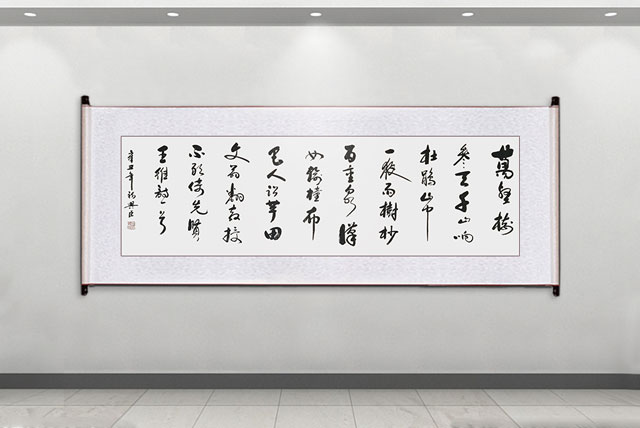 萬壑樹
參天千山响
杜鵑山中
一夜雨樹杪
百重泉漢
女輸橦布
巴人訟芋田
文翁翻教授
不敢倚先賢
王維詩一首
辛丑年